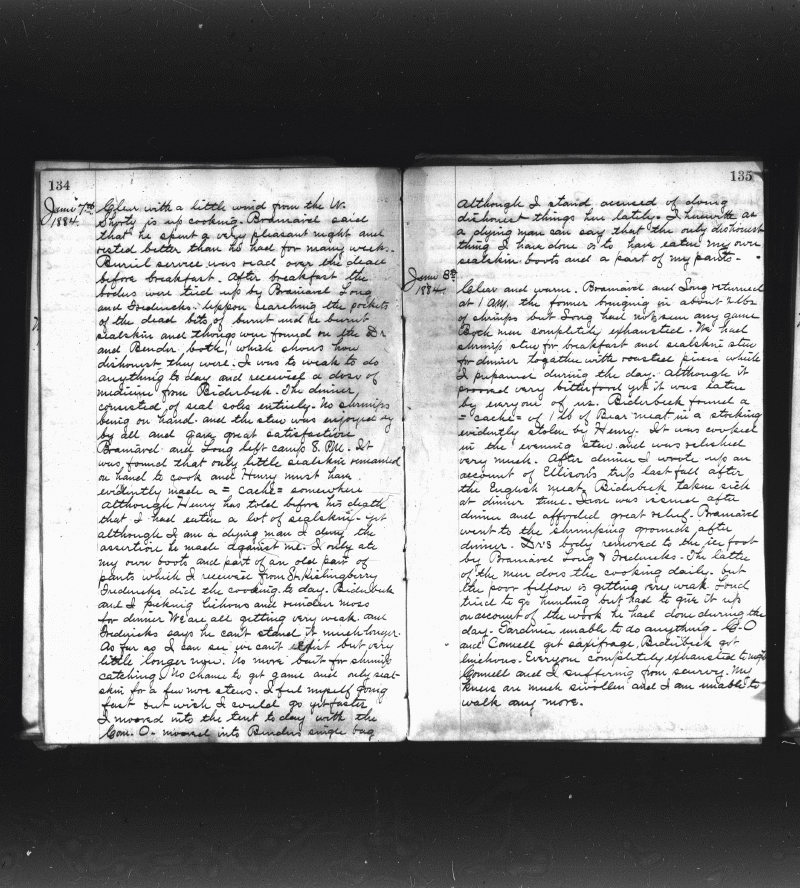 134
June 7th 1884. Clear with a little wind from the W.
Shorty is up cooking. Brainard said
that he spent a very pleasant night and
rested better than he had for many week.
Burriel service was read over the dead
before breakfast. After breakfast the
bodies were tied up by Brainard Long
and Fredericks. Uppon searching the pockets
of the dead bits of burnt and he burnt
sealskin and thongs were found on the Dr
and Bender both! which shows how
dishonest they were. I was to weak to do
anything to day and received a dose of
medicine from Biderbeck. The dinner
consisted of seal soles entirely. No shrimps
being on hand and the stew was enjoyed
by all and gave great satisfaction
Brainard and Long left camp 8. P.M. It
was found that only little sealskin remained
on hand to cook and Henry must have
evidently made a = cache = somewhere
Although Henry has told before his death
that I had eaten a lot of sealskin - yet
although I am a dying man I deny the
assertion he made against me. I only ate
my own boots and part of an old pair of
pants which I received from Lt. Kislingbury
Fredericks did the cooking to day. Biderbeck
and I picking lichens and reindeer moss
for dinner We are all getting very weak and
Fredericks says he cant stand it much longer.
As far as I can see we can't exist but very
little longer now. No more bait for shrimp
catching No chance to get game and only seal-
skin for a few more stews. I feel myself going
fast but wish I would go yet faster
I mooved into the tent to day with the
Com. O- mooved into Benders single bag
135
Although I stand accused of doing
dishonest things here lately. I herewith as
a dying man can say that the only dishonest
thing I have done is to have eaten my own
sealskin boots and a part of my pants -
June 8th 1884. Clear and warm. Brainard and Long returned
at 1 A.M. the former bringing in about 2 lbs.
of shrimps but Long had not seen any game
Both men completely exhausted. We had
shrimp stew for breakfast and sealskin stew
for dinner together with roasted pieces which
I prepared during the day. Although it
prooved very bitter food yet it was eaten
by everyone of us. Biderbeck found a
= cache = of 1 lb of Bear meat in a stocking
evidently stolen by Henry. It was cooked
in the evening stew and was relished
very much. After dinner I wrote up an
account of Ellison's trip last fall after
the English meat. Biderbeck taken sick
at dinner time. Iron was issued after
dinner and afforded great relief. Brainard
went to the shrimping grounds after
dinner. Drs body removed to the ice foot
by Brainard Long & Fredericks. The latter
of the men does the cooking daily. but
the poor fellow is getting very weak. Long
tried to go hunting but had to give it up
on account of the work he had done during the
day. Gardiner unable to do anything. C. O
and Connell got saxifrage, Biderbeck got
lichens. Everyone completely exhausted to night
Connell and I suffering from scurvy. My
knees are much swollen and I am unable to
walk any more.